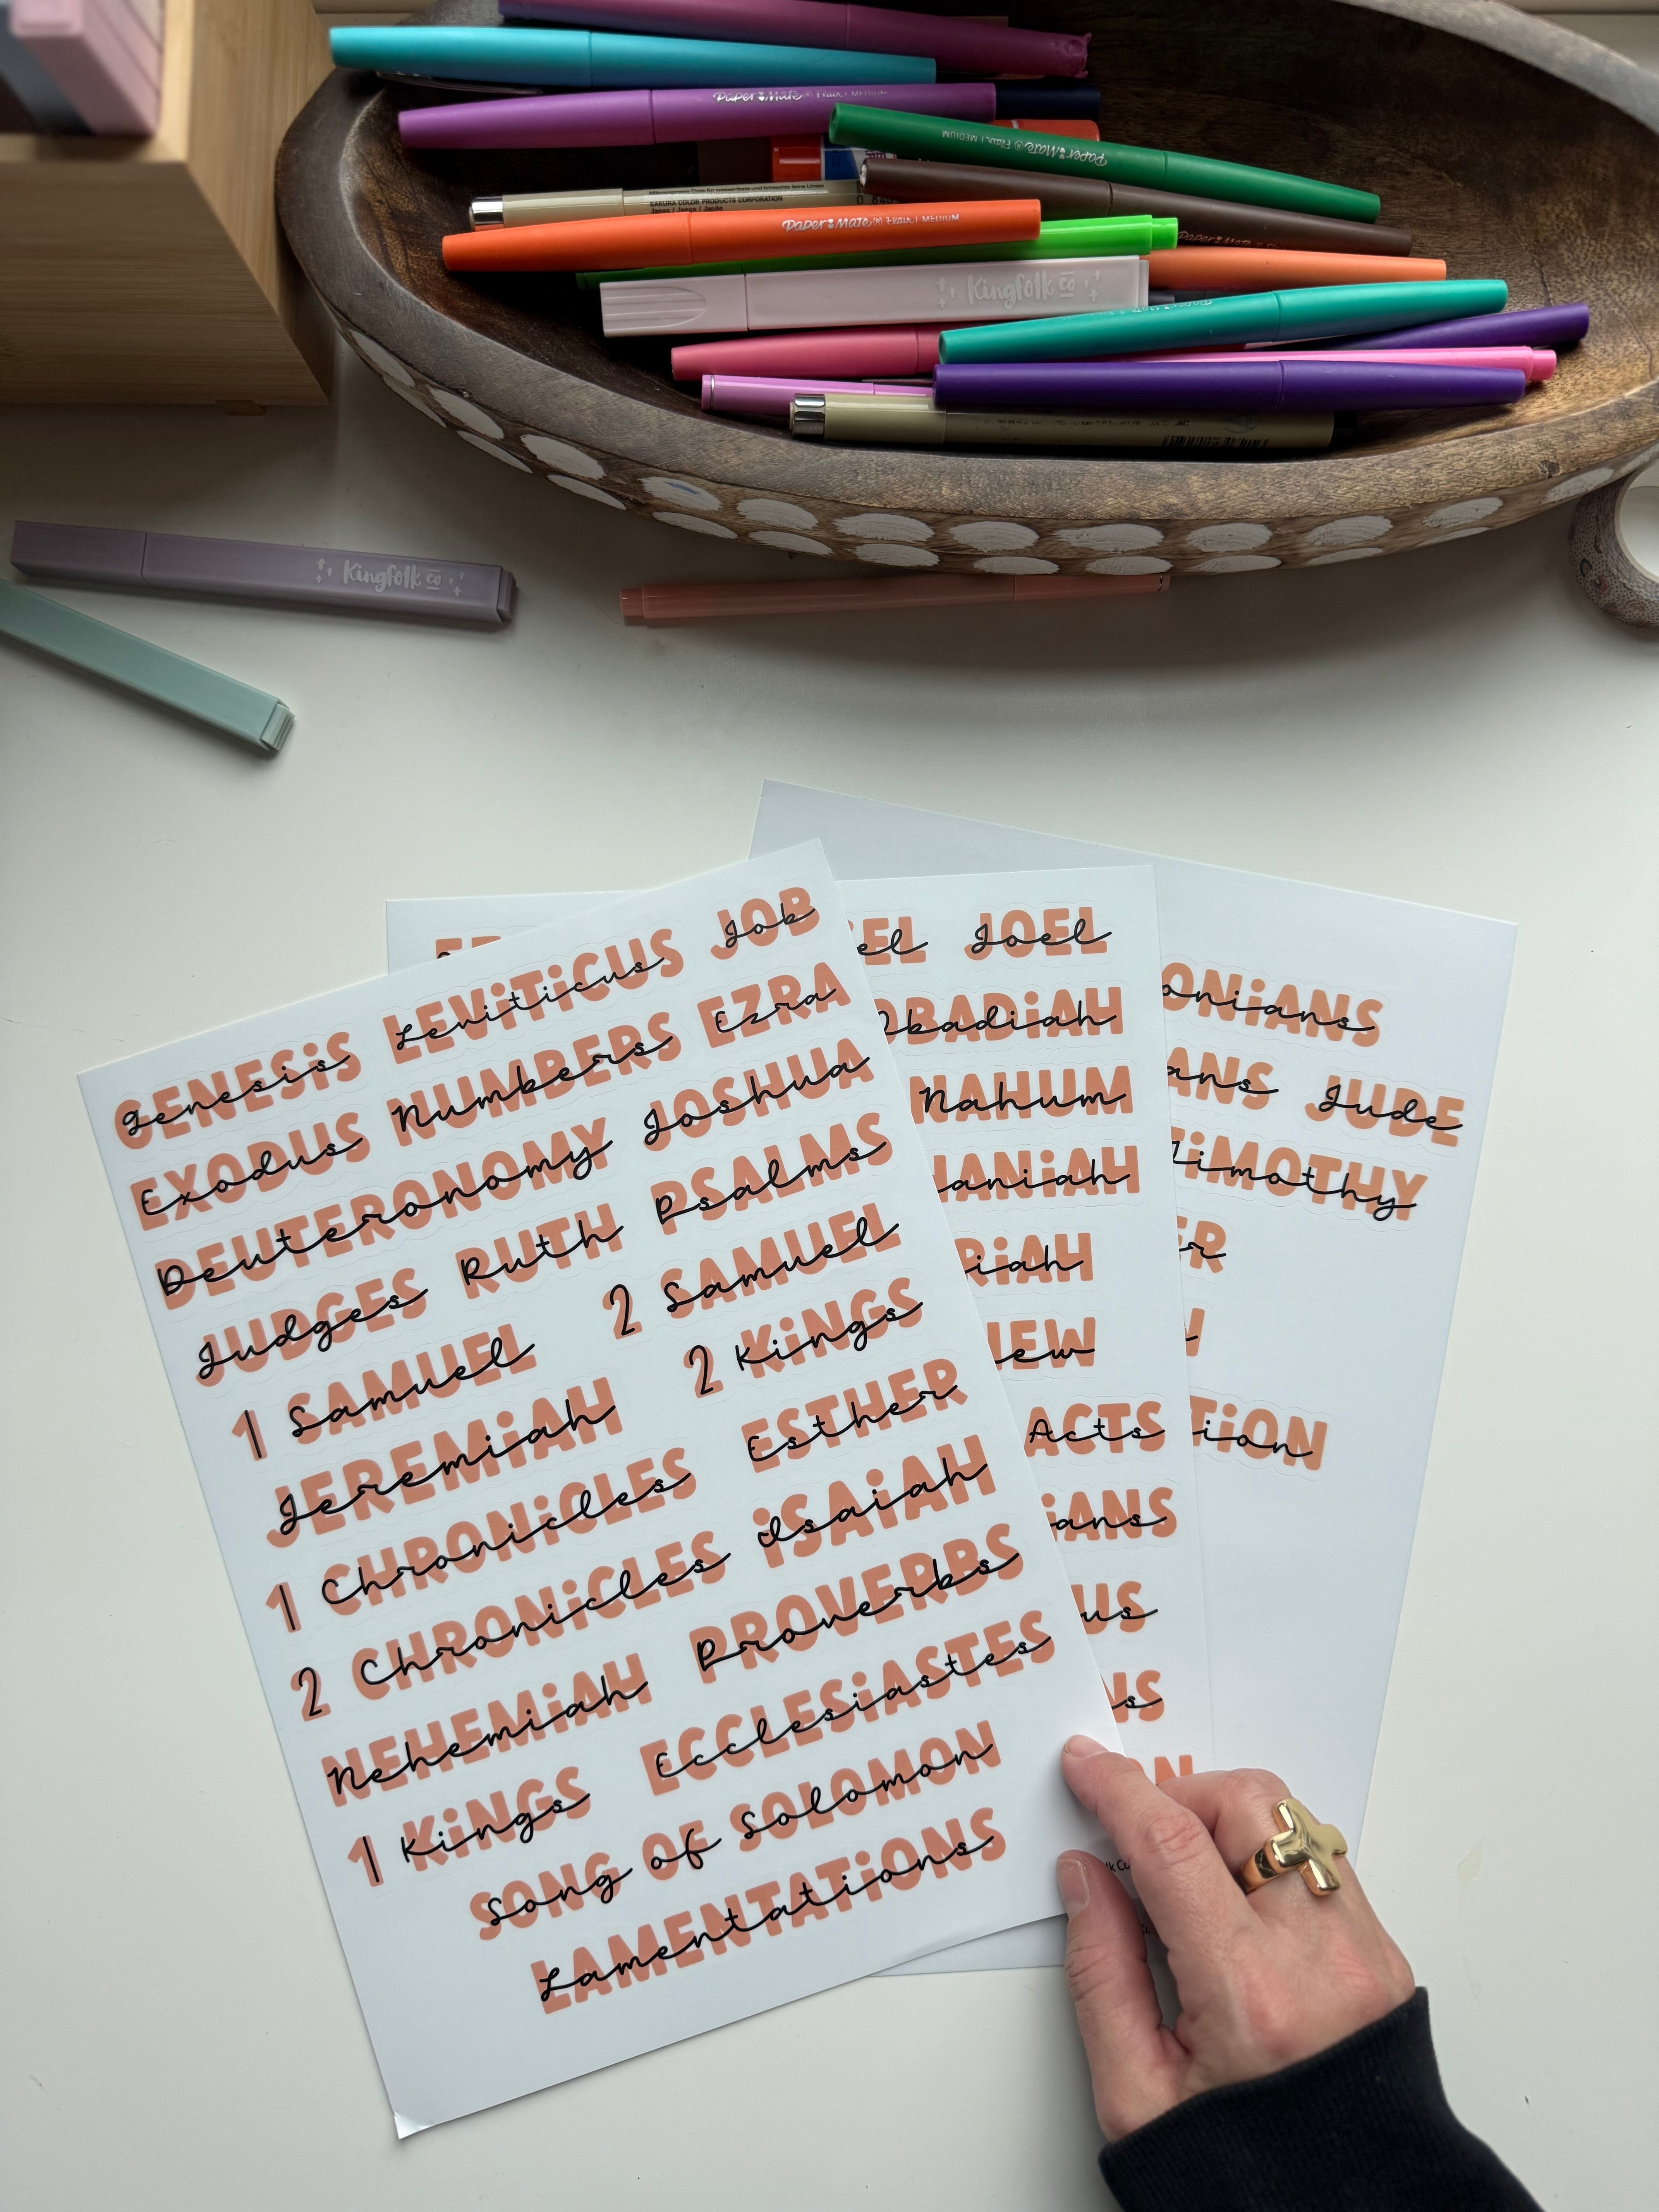 Paper Mate Flair MEDIUM
Paper Mate Flair MEDIUM
SAKURA COLOR PRODUCTS CORPORATION
Paper Mate Flair MEDIUM
Paper Mate
Kingfolk co
Kingfolk co
GENESIS Genesis LEVITICUS Leviticus JOB Job
EXODUS Exodus NUMBERS Numbers EZRA Ezra
DEUTERONOMY Deuteronomy JOSHUA Joshua
JUDGES Judges RUTH Ruth PSALMS Psalms
1 SAMUEL Samuel 2 SAMUEL Samuel
JEREMIAH Jeremiah 2 KINGS Kings
1 CHRONICLES Chronicles ESTHER Esther
2 CHRONICLES Chronicles ISAIAH Isaiah
NEHEMIAH Nehemiah PROVERBS Proverbs
1 KINGS Kings ECCLESIASTES Ecclesiastes
SONG OF SOLOMON Song of Solomon
LAMENTATIONS Lamentations
EL el JOEL Joel
OBADIAH Obadiah
NAHUM Nahum
HANIAH aniah
RIAH iah
EW ew
ACTS Acts
IANS ians
US us
NS s
ON
ONIANS onians
ANS ans JUDE Jude
TIMOTHY Timothy
ER r
TION tion